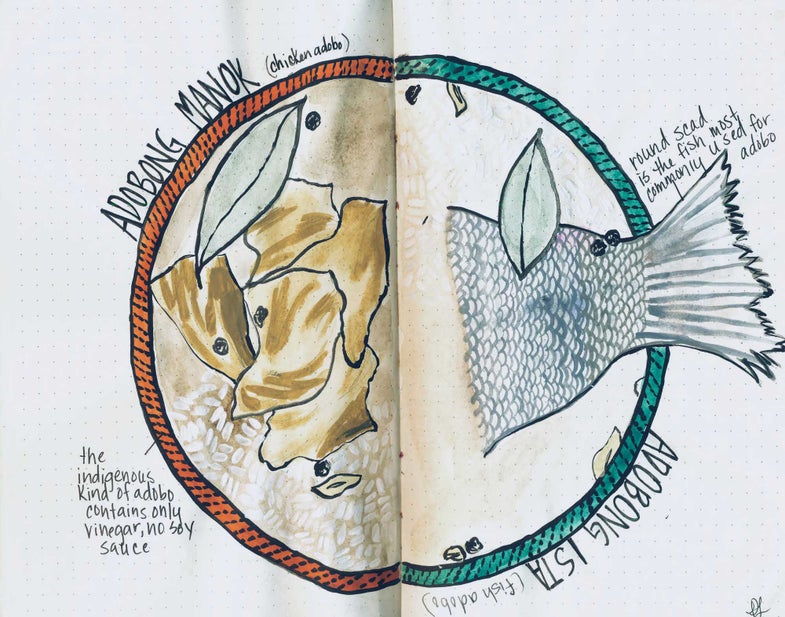 ADOBONG MANOK
(chicken adobo)
round scad
is the fish most
commonly used for
adobo
the
indigenous
kind of adobo
contains only
vinegar, no soy
sauce
ADOBONG ISTA
(fish adobo)